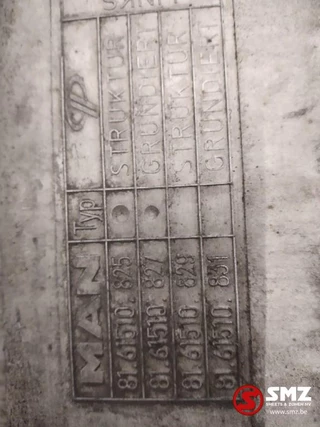 LINKS
MAN Typ
81.61510. 825 STRUKTUR
81.61510. 827 GRUNDIERT
81.61510. 829 STRUKTUR
81.61510. 831 GRUNDIERT
SMZ
www.smz.be